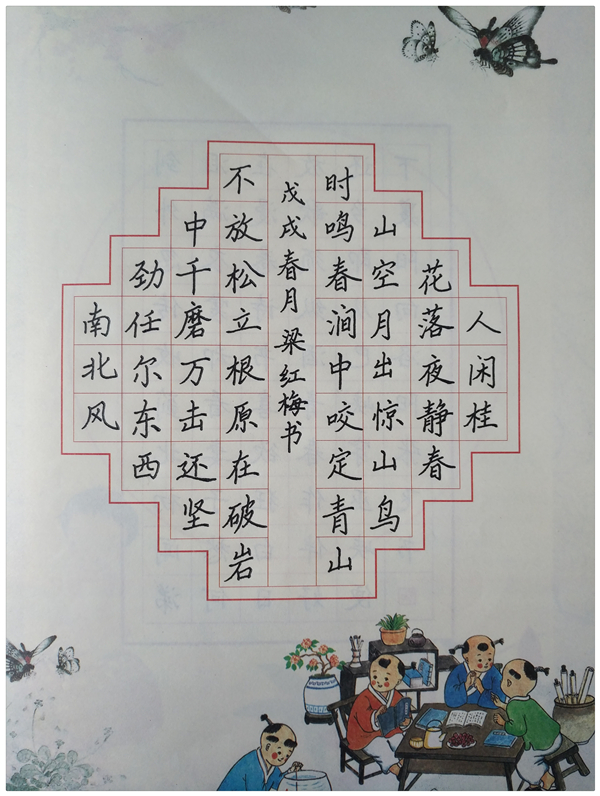 人闲桂
花落夜静春
山空月出惊山鸟
时鸣春涧中咬定青山
戊戌春月梁红梅书
不放松立根原在破岩
中千磨万击还坚
劲任尔东西
南北风